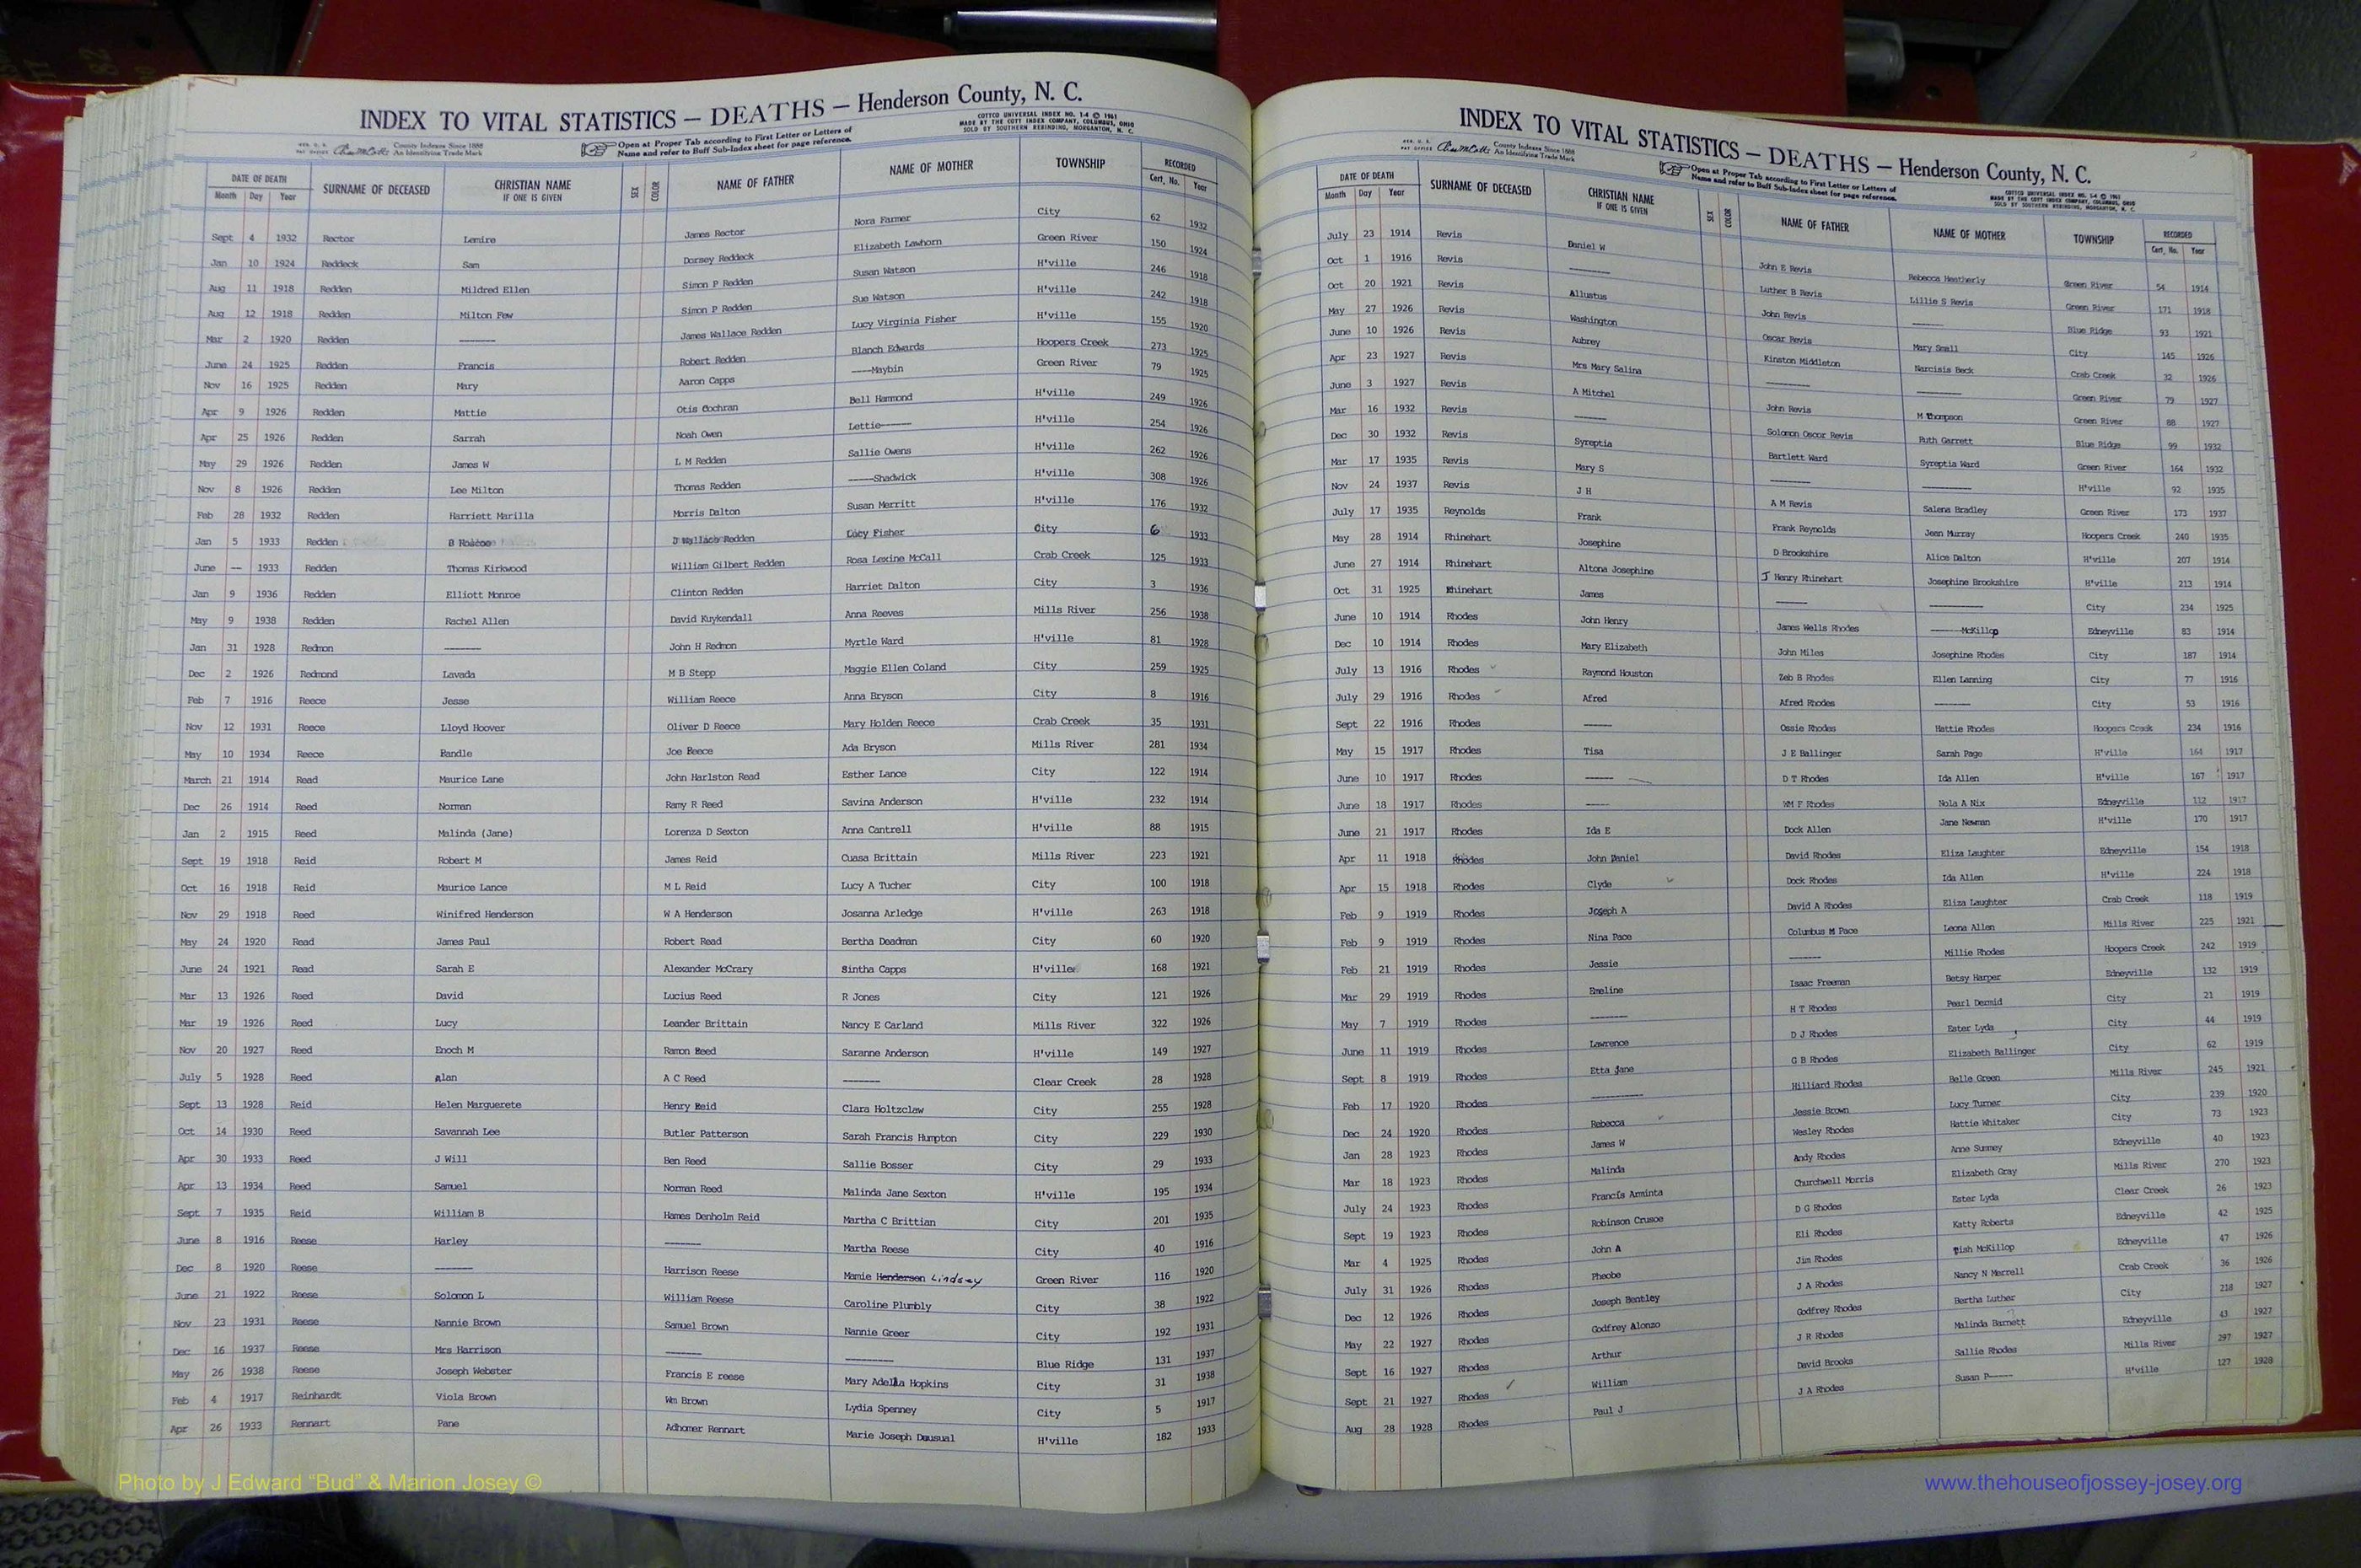 INDEX TO VITAL STATISTICS — DEATHS — Henderson County, N. C.
COTTCO UNIVERSAL INDEX NO. 1-4 © 1961
MADE BY THE COTT INDEX COMPANY, COLUMBUS, OHIO
SOLD BY SOUTHERN REBINDING, MORGANTON, N. C.
County Indexes Since 1888
An Identifying Trade Mark
Open at Proper Tab according to First Letter or Letters of
Name and refer to Buff Sub-Index sheet for page reference.
DATE OF DEATH SURNAME OF DECEASED CHRISTIAN NAME IF ONE IS GIVEN SEX COLOR NAME OF FATHER NAME OF MOTHER TOWNSHIP RECORDED
Month Day Year Cert. No. Year
Sept 4 1932 Rector Lemire James Rector Nora Farmer City 62 1932
Jan 10 1924 Reddeck Sam Dorsey Reddeck Elizabeth Lawhorn Green River 150 1924
Aug 11 1918 Redden Mildred Ellen Simon P Redden Susan Watson H'ville 246 1918
Aug 12 1918 Redden Milton Few Simon P Redden Sue Watson H'ville 242 1918
Mar 2 1920 Redden ------- James Wallace Redden Lucy Virginia Fisher H'ville 155 1920
June 24 1925 Redden Francis Robert Redden Blanch Edwards Hoopers Creek 273 1925
Nov 16 1925 Redden Mary Aaron Capps ----Maybin Green River 79 1925
Apr 9 1926 Redden Mattie Otis Cochran Bell Hammond H'ville 249 1926
Apr 25 1926 Redden Sarrah Noah Owen Lettie------ H'ville 254 1926
May 29 1926 Redden James W L M Redden Sallie Owens H'ville 262 1926
Nov 8 1926 Redden Lee Milton Thomas Redden -----Shadwick H'ville 308 1926
Feb 28 1932 Redden Harriett Marilla Morris Dalton Susan Merritt H'ville 176 1932
Jan 5 1933 Redden B Roscoe D Wallace Redden Lucy Fisher City 6 1933
June — 1933 Redden Thomas Kirkwood William Gilbert Redden Rosa Lexine McCall Crab Creek 125 1933
Jan 9 1936 Redden Elliott Monroe Clinton Redden Harriet Dalton City 3 1936
May 9 1938 Redden Rachel Allen David Kuykendall Anna Reeves Mills River 256 1938
Jan 31 1928 Redmon ------- John H Redmon Myrtle Ward H'ville 81 1928
Dec 2 1926 Redmond Lavada M B Stepp Maggie Ellen Coland City 259 1925
Feb 7 1916 Reece Jesse William Reece Anna Bryson City 8 1916
Nov 12 1931 Reece Lloyd Hoover Oliver D Reece Mary Holden Reece Crab Creek 35 1931
May 10 1934 Reece Randle Joe Reece Ada Bryson Mills River 281 1934
March 21 1914 Read Maurice Lane John Harlston Read Esther Lance City 122 1914
Dec 26 1914 Reed Norman Ramy R Reed Savina Anderson H'ville 232 1914
Jan 2 1915 Reed Malinda (Jane) Lorenza D Sexton Anna Cantrell H'ville 88 1915
Sept 19 1918 Reid Robert M James Reid Cuasa Brittain Mills River 223 1921
Oct 16 1918 Reid Maurice Lance M L Reid Lucy A Tucher City 100 1918
Nov 29 1918 Reed Winifred Henderson W A Henderson Josanna Arledge H'ville 263 1918
May 24 1920 Read James Paul Robert Read Bertha Deadman City 60 1920
June 24 1921 Read Sarah E Alexander McCrary Sintha Capps H'ville 168 1921
Mar 13 1926 Reed David Lucius Reed R Jones City 121 1926
Mar 19 1926 Reed Lucy Leander Brittain Nancy E Carland Mills River 322 1926
Nov 20 1927 Reed Enoch M Ramon Reed Saranne Anderson H'ville 149 1927
July 5 1928 Reed Alan A C Reed ------- Clear Creek 28 1928
Sept 13 1928 Reid Helen Marguerete Henry Reid Clara Holtzclaw City 255 1928
Oct 14 1930 Reed Savannah Lee Butler Patterson Sarah Francis Humpton City 229 1930
Apr 30 1933 Reed J Will Ben Reed Sallie Bosser City 29 1933
Apr 13 1934 Reed Samuel Norman Reed Malinda Jane Sexton H'ville 195 1934
Sept 7 1935 Reid William B Hames Denholm Reid Martha C Brittian City 201 1935
June 8 1916 Reese Harley ------- Martha Reese City 40 1916
Dec 8 1920 Reese ------- Harrison Reese Mamie Henderson Lindsay Green River 116 1920
June 21 1922 Reese Solomon L William Reese Caroline Plumbly City 38 1922
Nov 23 1931 Reese Nannie Brown Samuel Brown Nannie Greer City 192 1931
Dec 16 1937 Reese Mrs Harrison ------- --------- Blue Ridge 131 1937
May 26 1938 Reese Joseph Webster Francis E reese Mary Adella Hopkins City 31 1938
Feb 4 1917 Reinhardt Viola Brown Wm Brown Lydia Spenney City 5 1917
Apr 26 1933 Rennart Pane Adhomer Rennart Marie Joseph Duusual H'ville 182 1933
INDEX TO VITAL STATISTICS — DEATHS — Henderson County, N. C.
COTTCO UNIVERSAL INDEX NO. 1-4 © 1961
MADE BY THE COTT INDEX COMPANY, COLUMBUS, OHIO
SOLD BY SOUTHERN REBINDING, MORGANTON, N. C.
County Indexes Since 1888
An Identifying Trade Mark
Open at Proper Tab according to First Letter or Letters of
Name and refer to Buff Sub-Index sheet for page reference.
DATE OF DEATH SURNAME OF DECEASED CHRISTIAN NAME IF ONE IS GIVEN SEX COLOR NAME OF FATHER NAME OF MOTHER TOWNSHIP RECORDED
Month Day Year Cert. No. Year
July 23 1914 Revis Daniel W John E Revis Rebecca Heatherly Green River 54 1914
Oct 1 1916 Revis ------- Luther B Revis Lillie S Revis Green River 171 1918
Oct 20 1921 Revis Allustus John Revis ------- Blue Ridge 93 1921
May 27 1926 Revis Washington Oscar Revis Mary Small City 145 1926
June 10 1926 Revis Aubrey Kinston Middleton Narcisis Beck Crab Creek 32 1926
Apr 23 1927 Revis Mrs Mary Salina --------- --------- Green River 79 1927
June 3 1927 Revis A Mitchel John Revis M Thompson Green River 88 1927
Mar 16 1932 Revis ------- Solomon Oscor Revis Ruth Garrett Blue Ridge 99 1932
Dec 30 1932 Revis Syreptia Bartlett Ward Syreptia Ward Green River 164 1932
Mar 17 1935 Revis Mary S -------- --------- H'ville 92 1935
Nov 24 1937 Revis J H A M Revis Salena Bradley Green River 173 1937
July 17 1935 Reynolds Frank Frank Reynolds Jean Murray Hoopers Creek 240 1935
May 28 1914 Rhinehart Josephine D Brookshire Alice Dalton H'ville 207 1914
June 27 1914 Rhinehart Altona Josephine J Henry Rhinehart Josephine Brookshire H'ville 213 1914
Oct 31 1925 Rhinehart James ------- --------- City 234 1925
June 10 1914 Rhodes John Henry James Wells Rhodes -----McKillop Edneyville 83 1914
Dec 10 1914 Rhodes Mary Elizabeth John Miles Josephine Rhodes City 187 1914
July 13 1916 Rhodes Raymond Houston Zeb B Rhodes Ellen Lanning City 77 1916
July 29 1916 Rhodes Afred Alfred Rhodes ------- City 53 1916
Sept 22 1916 Rhodes ------ Ossie Rhodes Hattie Rhodes Hoopers Creek 234 1916
May 15 1917 Rhodes Tisa J E Ballinger Sarah Page H'ville 164 1917
June 10 1917 Rhodes ------ D T Rhodes Ida Allen H'ville 167 1917
June 18 1917 Rhodes ----- WM F Rhodes Nola A Nix Edneyville 112 1917
June 21 1917 Rhodes Ida E Dock Allen Jane Newman H'ville 170 1917
Apr 11 1918 Rhodes John Daniel David Rhodes Eliza Laughter Edneyville 154 1918
Apr 15 1918 Rhodes Clyde Dock Rhodes Ida Allen H'ville 224 1918
Feb 9 1919 Rhodes Joseph A David A Rhodes Eliza Laughter Crab Creek 118 1919
Feb 9 1919 Rhodes Nina Pace Columbus M Pace Leona Allen Mills River 225 1921
Feb 21 1919 Rhodes Jessie ------- Millie Rhodes Hoopers Creek 242 1919
Mar 29 1919 Rhodes Emeline Isaac Freeman Betsy Harper Edneyville 132 1919
May 7 1919 Rhodes -------- H T Rhodes Pearl Dermid City 21 1919
June 11 1919 Rhodes Lawrence D J Rhodes Ester Lyda City 44 1919
Sept 8 1919 Rhodes Etta Jane G B Rhodes Elizabeth Ballinger City 62 1919
Feb 17 1920 Rhodes ----------- Hilliard Rhodes Belle Green Mills River 245 1921
Dec 24 1920 Rhodes Rebecca Jessie Brown Lucy Turner City 239 1920
Jan 28 1923 Rhodes James W Wesley Rhodes Hattie Whitaker City 73 1923
Mar 18 1923 Rhodes Malinda Andy Rhodes Anne Summey Edneyville 40 1923
July 24 1923 Rhodes Francis Arminta Churchwell Morris Elizabeth Gray Mills River 270 1923
Sept 19 1923 Rhodes Robinson Crusoe D G Rhodes Ester Lyda Clear Creek 26 1923
Mar 4 1925 Rhodes John A Eli Rhodes Katty Roberts Edneyville 42 1925
July 31 1926 Rhodes Pheobe Jim Rhodes Tish McKillop Edneyville 47 1926
Dec 12 1926 Rhodes Joseph Bentley J A Rhodes Nancy N Merrell Crab Creek 36 1926
May 22 1927 Rhodes Godfrey Alonzo Godfrey Rhodes Bertha Luther City 218 1927
Sept 16 1927 Rhodes Arthur J R Rhodes Malinda Barnett Edneyville 43 1927
Sept 21 1927 Rhodes William David Brooks Sallie Rhodes Mills River 297 1927
Aug 28 1928 Rhodes Paul J J A Rhodes Susan P----- H'ville 127 1928
Photo by J Edward "Bud" & Marion Josey ©
www.thehouseofjossey-josey.org